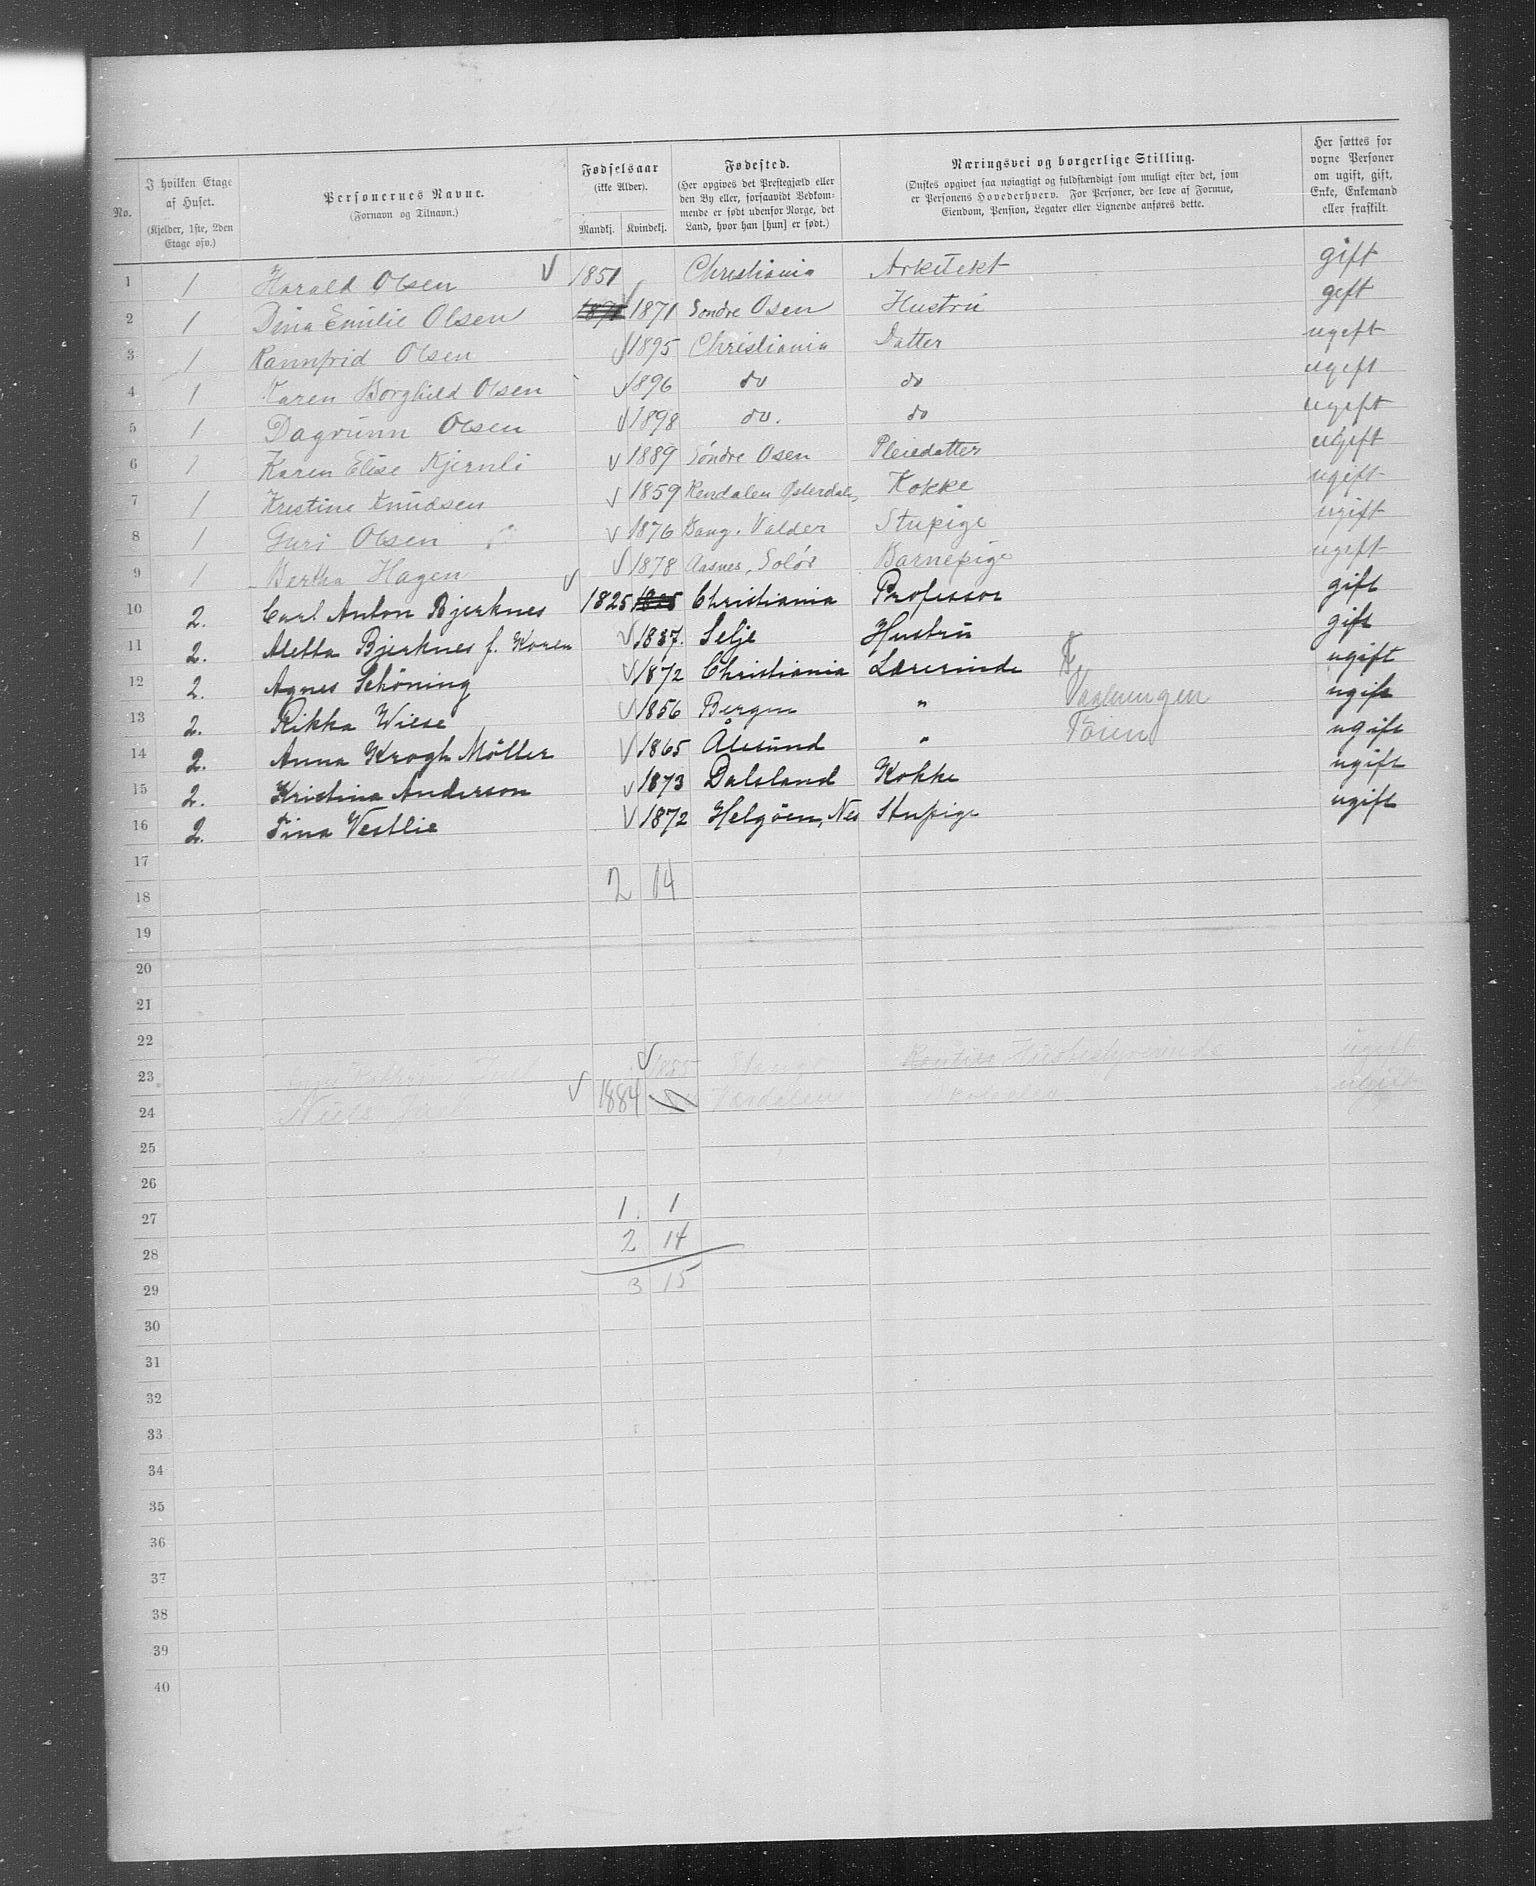 No. | I hvilken Etage af Huset. (Kjelder, 1ste, 2den Etage osv.) | Personernes Navne. (Fornavn og Tilnavn.) | Fødselsaar (ikke Alder). Mandkj. Kvindekj. | Fødested. (Her opgives det Prestegjæld eller den By eller, forsaavidt Vedkommende er født udenfor Norge, det Land, hvor han [hun] er født.) | Næringsvei og borgerlige Stilling. (Ønskes opgivet saa nøiagtigt og fuldstændigt som muligt efter det, som er Personens Hovederhverv. For Personer, der leve af Formue, Eiendom, Pension, Legater eller Lignende anføres dette. | Her sættes for voxne Personer om ugift, gift, Enke, Enkemand eller fraskilt.
1 | 1 | Harald Olsen | 1851 | Christiania | Arkitekt | gift
2 | 1 | Dina Emilie Olsen | 1871 1871 | Søndre Osen | Hustru | gift
3 | 1 | Rannfrid Olsen | 1895 | Christiania | Datter | ugift
4 | 1 | Karen Borghild Olsen | 1896 | do | do | ugift
5 | 1 | Dagrunn Olsen | 1898 | do. | do | ugift
6 | 1 | Karen Elise Kjernli | 1889 | Søndre Osen | Pleiedatter | ugift
7 | 1 | Kristine Knudsen | 1859 | Rendalen Østerdalen | Kokke | ugift
8 | 1 | Guri Olsen | 1876 | Vang. Valder | Stupige | ugift
9 | 1 | Bertha Hagen | 1878 | Aasnes, Solør | Barnepige | ugift
10 | 2. | Carl Anton Bjerknes | 1825 1825 | Christiania | Professor | gift
11 | 2. | Aletta Bjerknes f. Koren | 1837. | Selje | Hustru | gift
12 | 2. | Agnes Schöning | 1872 | Christiania | Lærerinde | ugift
13 | 2. | Rikka Wiese | 1856 | Bergen | " | Vaalerengen | ugift
14 | 2. | Anna Krogh Möller | 1865 | Ålesund | " | Tøien | ugift
15 | 2. | Kristina Anderson | 1873 | Dalsland | Kokke | ugift
16 | 2. | Tina Vestlie | 1872 | Helgøen, Nes | Stupige | ugift
17
18 | 2 | 14
19
20
21
22
23 | 1885 | Stange | Husbestyrerinde | ugift
24 | Niels | 1884 | Værdalen | ugift
25
26
27 | 1. | 1
28 | 2 | 14
29 | 3 | 15
30
31
32
33
34
35
36
37
38
39
40